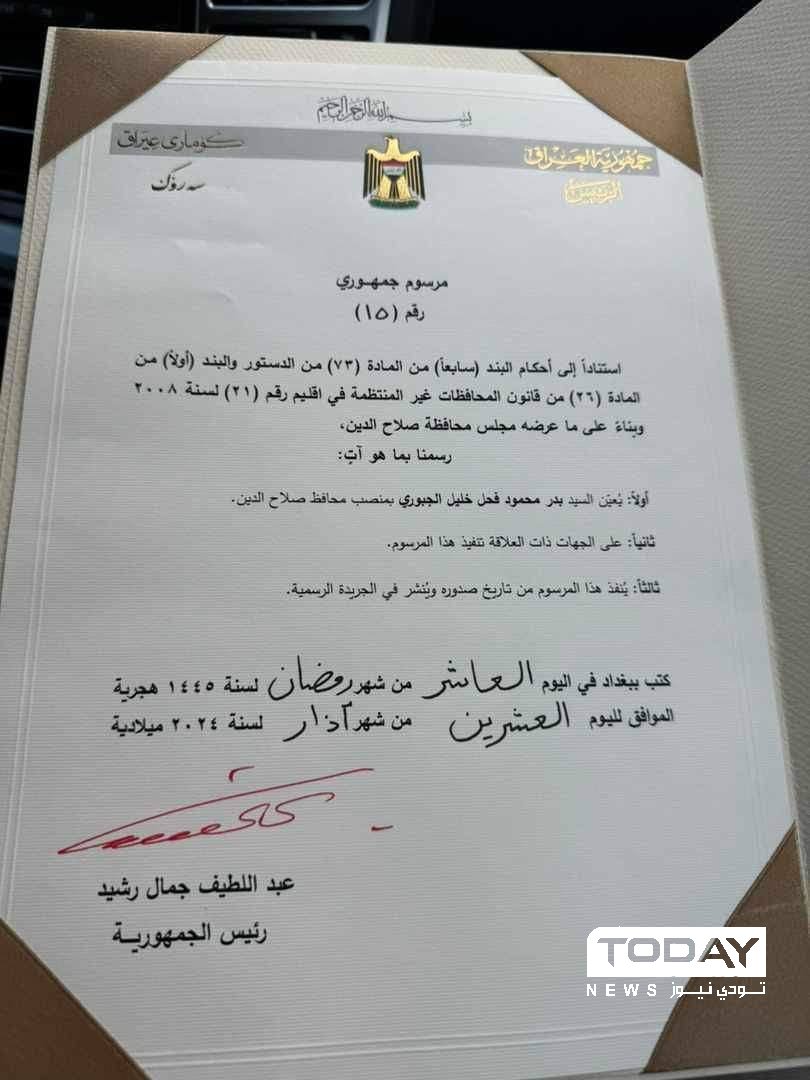 بسم الله الرحمن الرحيم
جمهورية العراق
كۆماری عێراق
الرئيس
سەرۆک
مرسوم جمهوري
رقم (١٥)
استناداً إلى أحكام البند (سابعاً) من المادة (٧٣) من الدستور والبند (أولاً) من
المادة (٢٦) من قانون المحافظات غير المنتظمة في اقليم رقم (٢١) لسنة ٢٠٠٨
وبناءً على ما عرضه مجلس محافظة صلاح الدين،
رسمنا بما هو آتٍ:
أولاً: يُعيّن السيد بدر محمود فحل خليل الجبوري بمنصب محافظ صلاح الدين.
ثانياً: على الجهات ذات العلاقة تنفيذ هذا المرسوم.
ثالثاً: يُنفذ هذا المرسوم من تاريخ صدوره ويُنشر في الجريدة الرسمية.
كتب ببغداد في اليوم العاشر من شهر رمضان لسنة ١٤٤٥ هجرية
الموافق لليوم العشرين من شهر آذار لسنة ٢٠٢٤ ميلادية
عبد اللطيف جمال رشيد
رئيس الجمهوريــة
TODAY
NEWS تودي نيوز